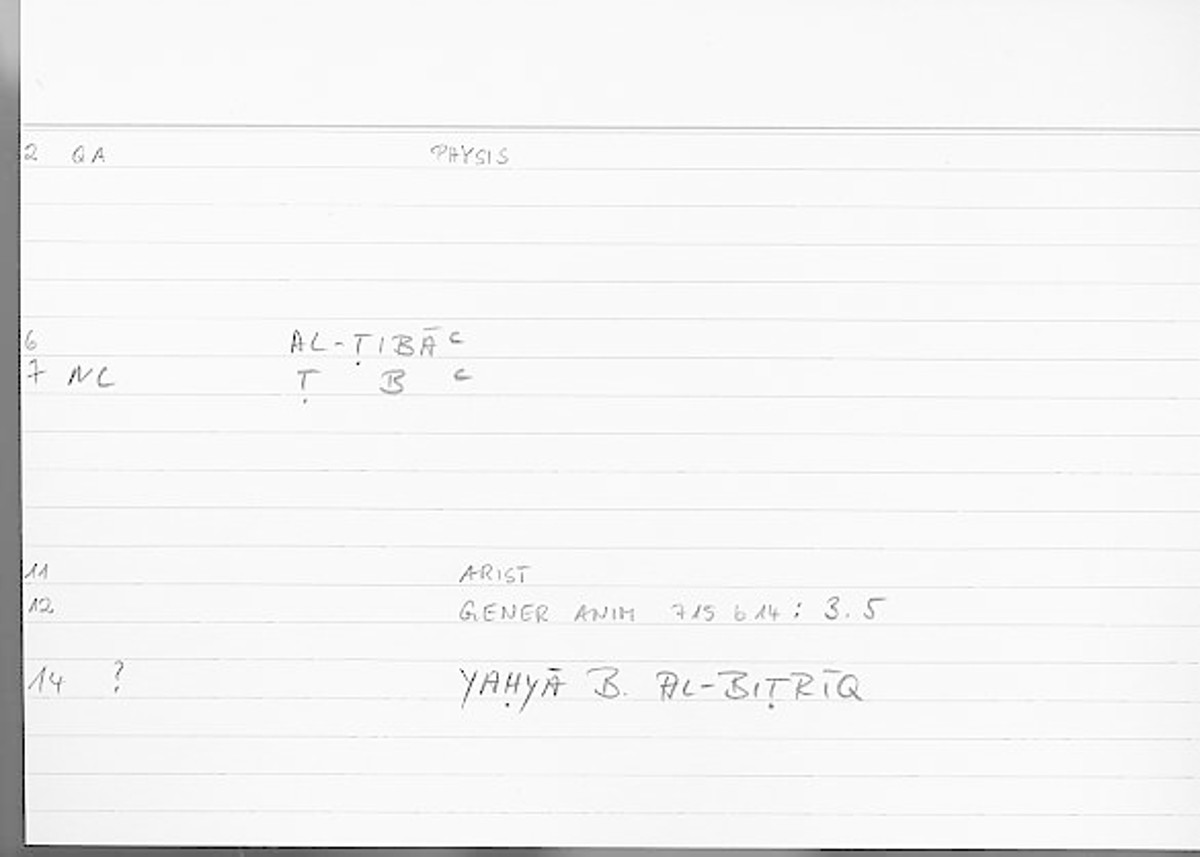 2 QA PHYSIS
6 AL-ṬIBĀʿ
7 NC Ṭ B ʿ
11 ARIST
12 GENER ANIM 715 b 14: 3.5
14 ? YAḤYĀ B. AL-BIṬRĪQ